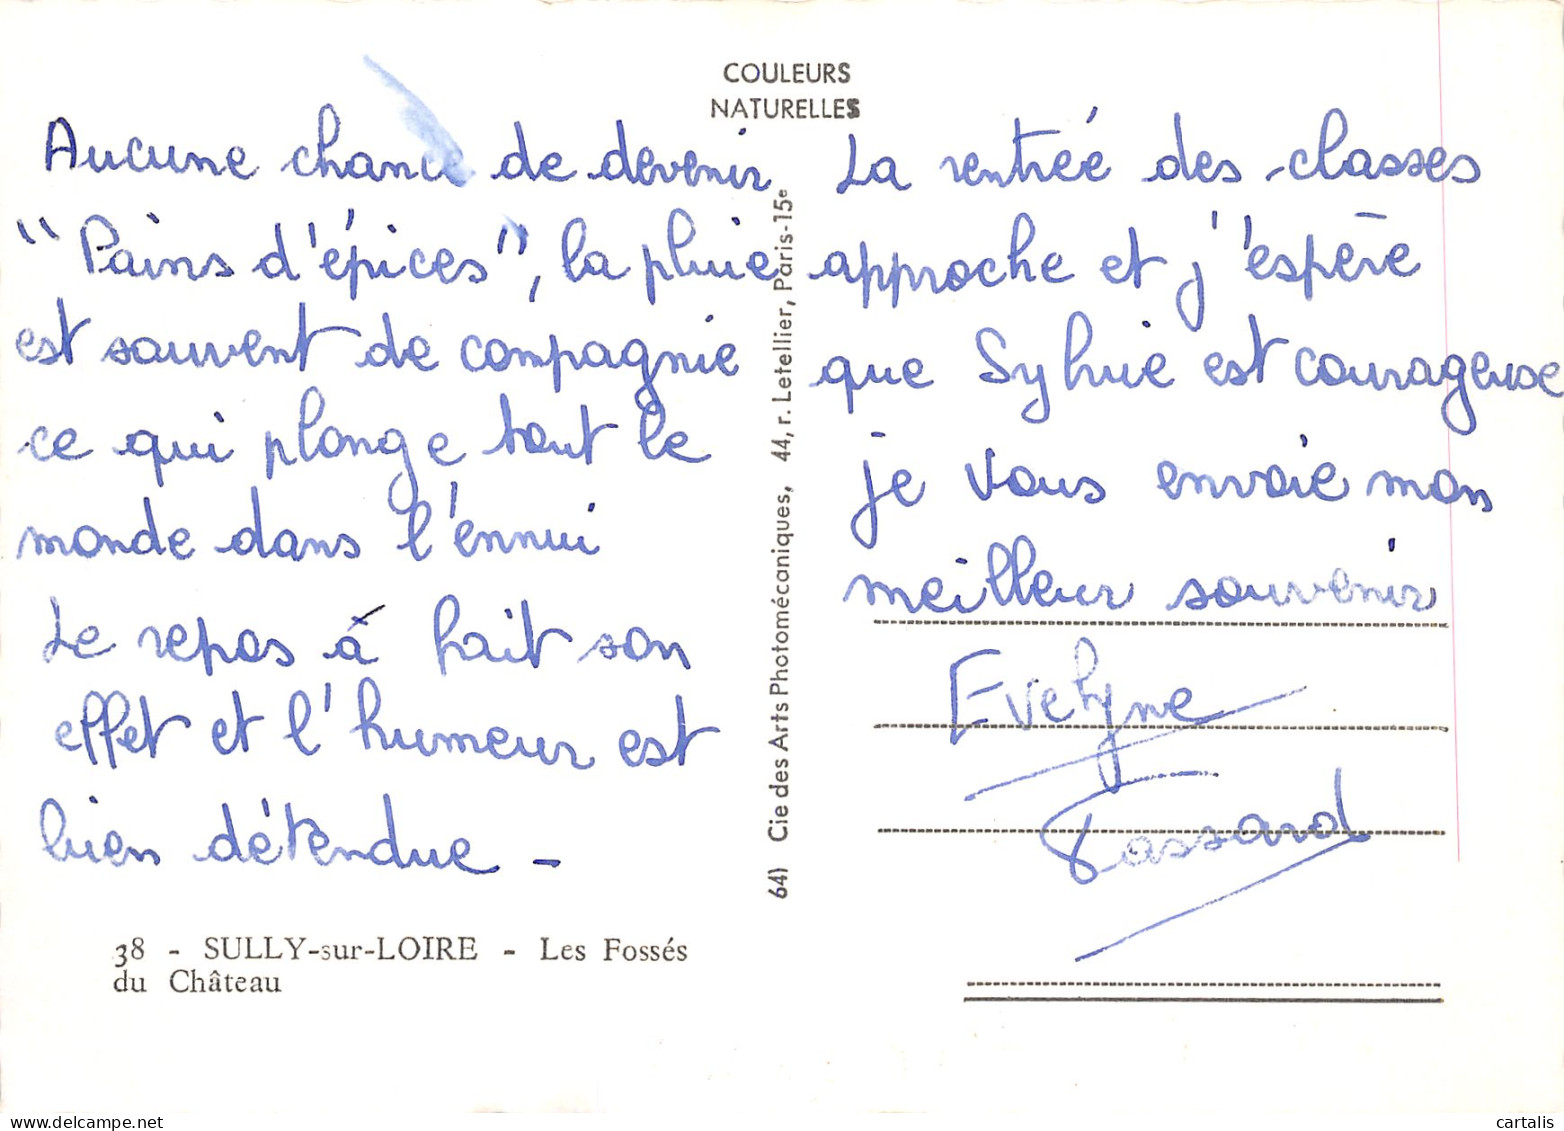 COULEURS
NATURELLES
Aucune chance de devenir
"Pains d'épices", la pluie
est souvent de compagnie
ce qui plonge tout le
monde dans l'ennui
Le repos à fait son
effet et l'humeur est
bien détendue -
38 - SULLY-sur-LOIRE - Les Fossés
du Château
64) Cie des Arts Photomécaniques, 44, r. Letellier, Paris-15e
La rentrée des classes
approche et j'espère
que Sylvie est courageuse
je vous envoie mon
meilleur souvenir
Evelyne
Tassard
cartalis